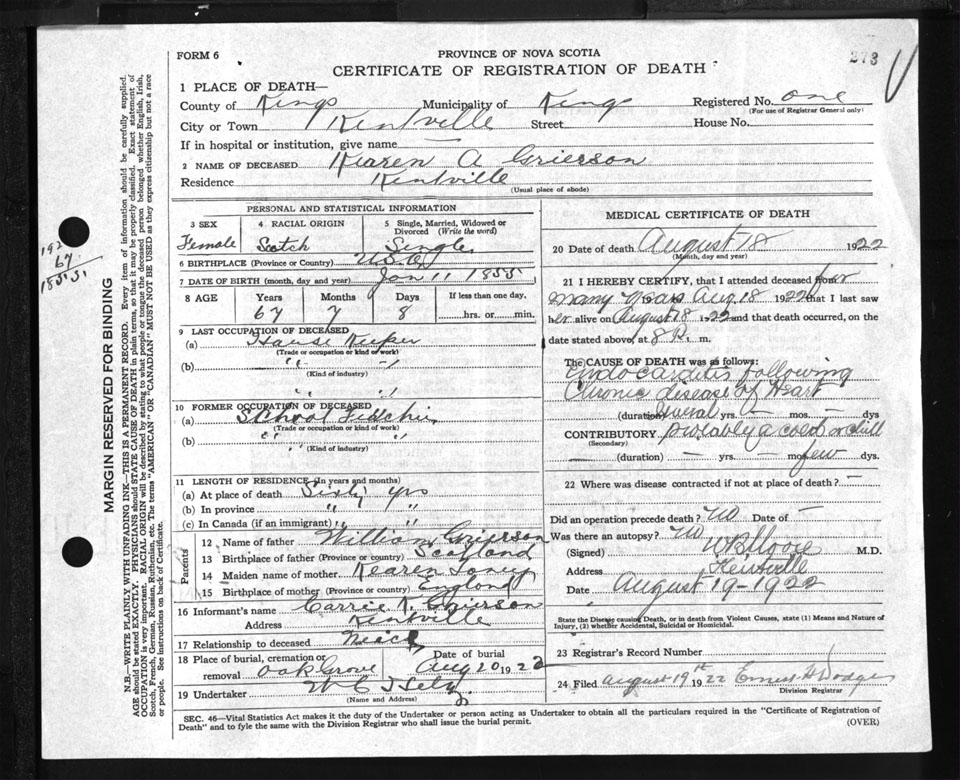 FORM 6
PROVINCE OF NOVA SCOTIA
273
CERTIFICATE OF REGISTRATION OF DEATH
1 PLACE OF DEATH—
County of Kings Municipality of Kings Registered No. one
(For use of Registrar General only)
City or Town Kentville Street House No.
If in hospital or institution, give name
2 NAME OF DECEASED Kearen A Grierson
Residence Kentville
(Usual place of abode)
MARGIN RESERVED FOR BINDING
N.B.—WRITE PLAINLY WITH UNFADING INK—THIS IS A PERMANENT RECORD. Every item of information should be carefully supplied.
AGE should be stated EXACTLY. PHYSICIANS should STATE CAUSE OF DEATH in plain terms, so that it may be properly classified. Exact statement of
OCCUPATION is very important. RACIAL ORIGIN will be described by stating to what people or tongue the deceased person belonged whether English, Irish,
Scotch, French, German, Russian, Ruthenian, etc. The terms "AMERICAN" OR "CANADIAN" MUST NOT BE USED as they express citizenship but not a race
or people. See instructions on back of Certificate.
192
67
1855
PERSONAL AND STATISTICAL INFORMATION
3 SEX 4 RACIAL ORIGIN 5 Single, Married, Widowed or
Divorced (Write the word)
Female Scotch Single
6 BIRTHPLACE (Province or Country) U.S.A.
7 DATE OF BIRTH (month, day and year) Jan 11 1855
8 AGE Years Months Days If less than one day.
67 7 8 hrs. or min.
9 LAST OCCUPATION OF DECEASED
(a) House Keeper
(Trade or occupation or kind of work)
(b) " "
(Kind of industry)
" "
10 FORMER OCCUPATION OF DECEASED
(a) School
(Trade or occupation or kind of work)
(b) " " "
(Kind of industry)
11 LENGTH OF RESIDENCE (In years and months)
(a) At place of death Sixty yrs
(b) In province " "
(c) In Canada (if an immigrant) " "
Parents
12 Name of father William Grierson
13 Birthplace of father (Province or country) Scotland
14 Maiden name of mother Kearen
15 Birthplace of mother (Province or country) England
16 Informant's name Carrie Grierson
Address Kentville
17 Relationship to deceased Neace
18 Place of burial, cremation or removal Oak Grove
Date of burial Aug 20 1922
19 Undertaker W C
(Name and Address)
MEDICAL CERTIFICATE OF DEATH
20 Date of death August 18 1922
(Month, day and year)
21 I HEREBY CERTIFY, that I attended deceased for
many years Aug. 18 1922 that I last saw
her alive on August 18 1922 and that death occurred, on the
date stated above, at 8 P. m.
The CAUSE OF DEATH was as follows:
Endocarditis following
Chronic disease of Heart
(duration) Several yrs. — mos. — dys
CONTRIBUTORY probably a cold or chill
(Secondary)
— (duration) — yrs. — mos. few dys.
22 Where was disease contracted if not at place of death? —
Did an operation precede death? No Date of —
Was there an autopsy? No
(Signed) W B Moore M.D.
Address Kentville
Date August 19 - 1922
State the Disease causing Death, or in death from Violent Causes, state (1) Means and Nature of
Injury, (2) whether Accidental, Suicidal or Homicidal.
23 Registrar's Record Number
24 Filed August 19th 1922 Ernest H Dodge
Division Registrar
SEC. 46—Vital Statistics Act makes it the duty of the Undertaker or person acting as Undertaker to obtain all the particulars required in the "Certificate of Registration of
Death" and to fyle the same with the Division Registrar who shall issue the burial permit.
(OVER)